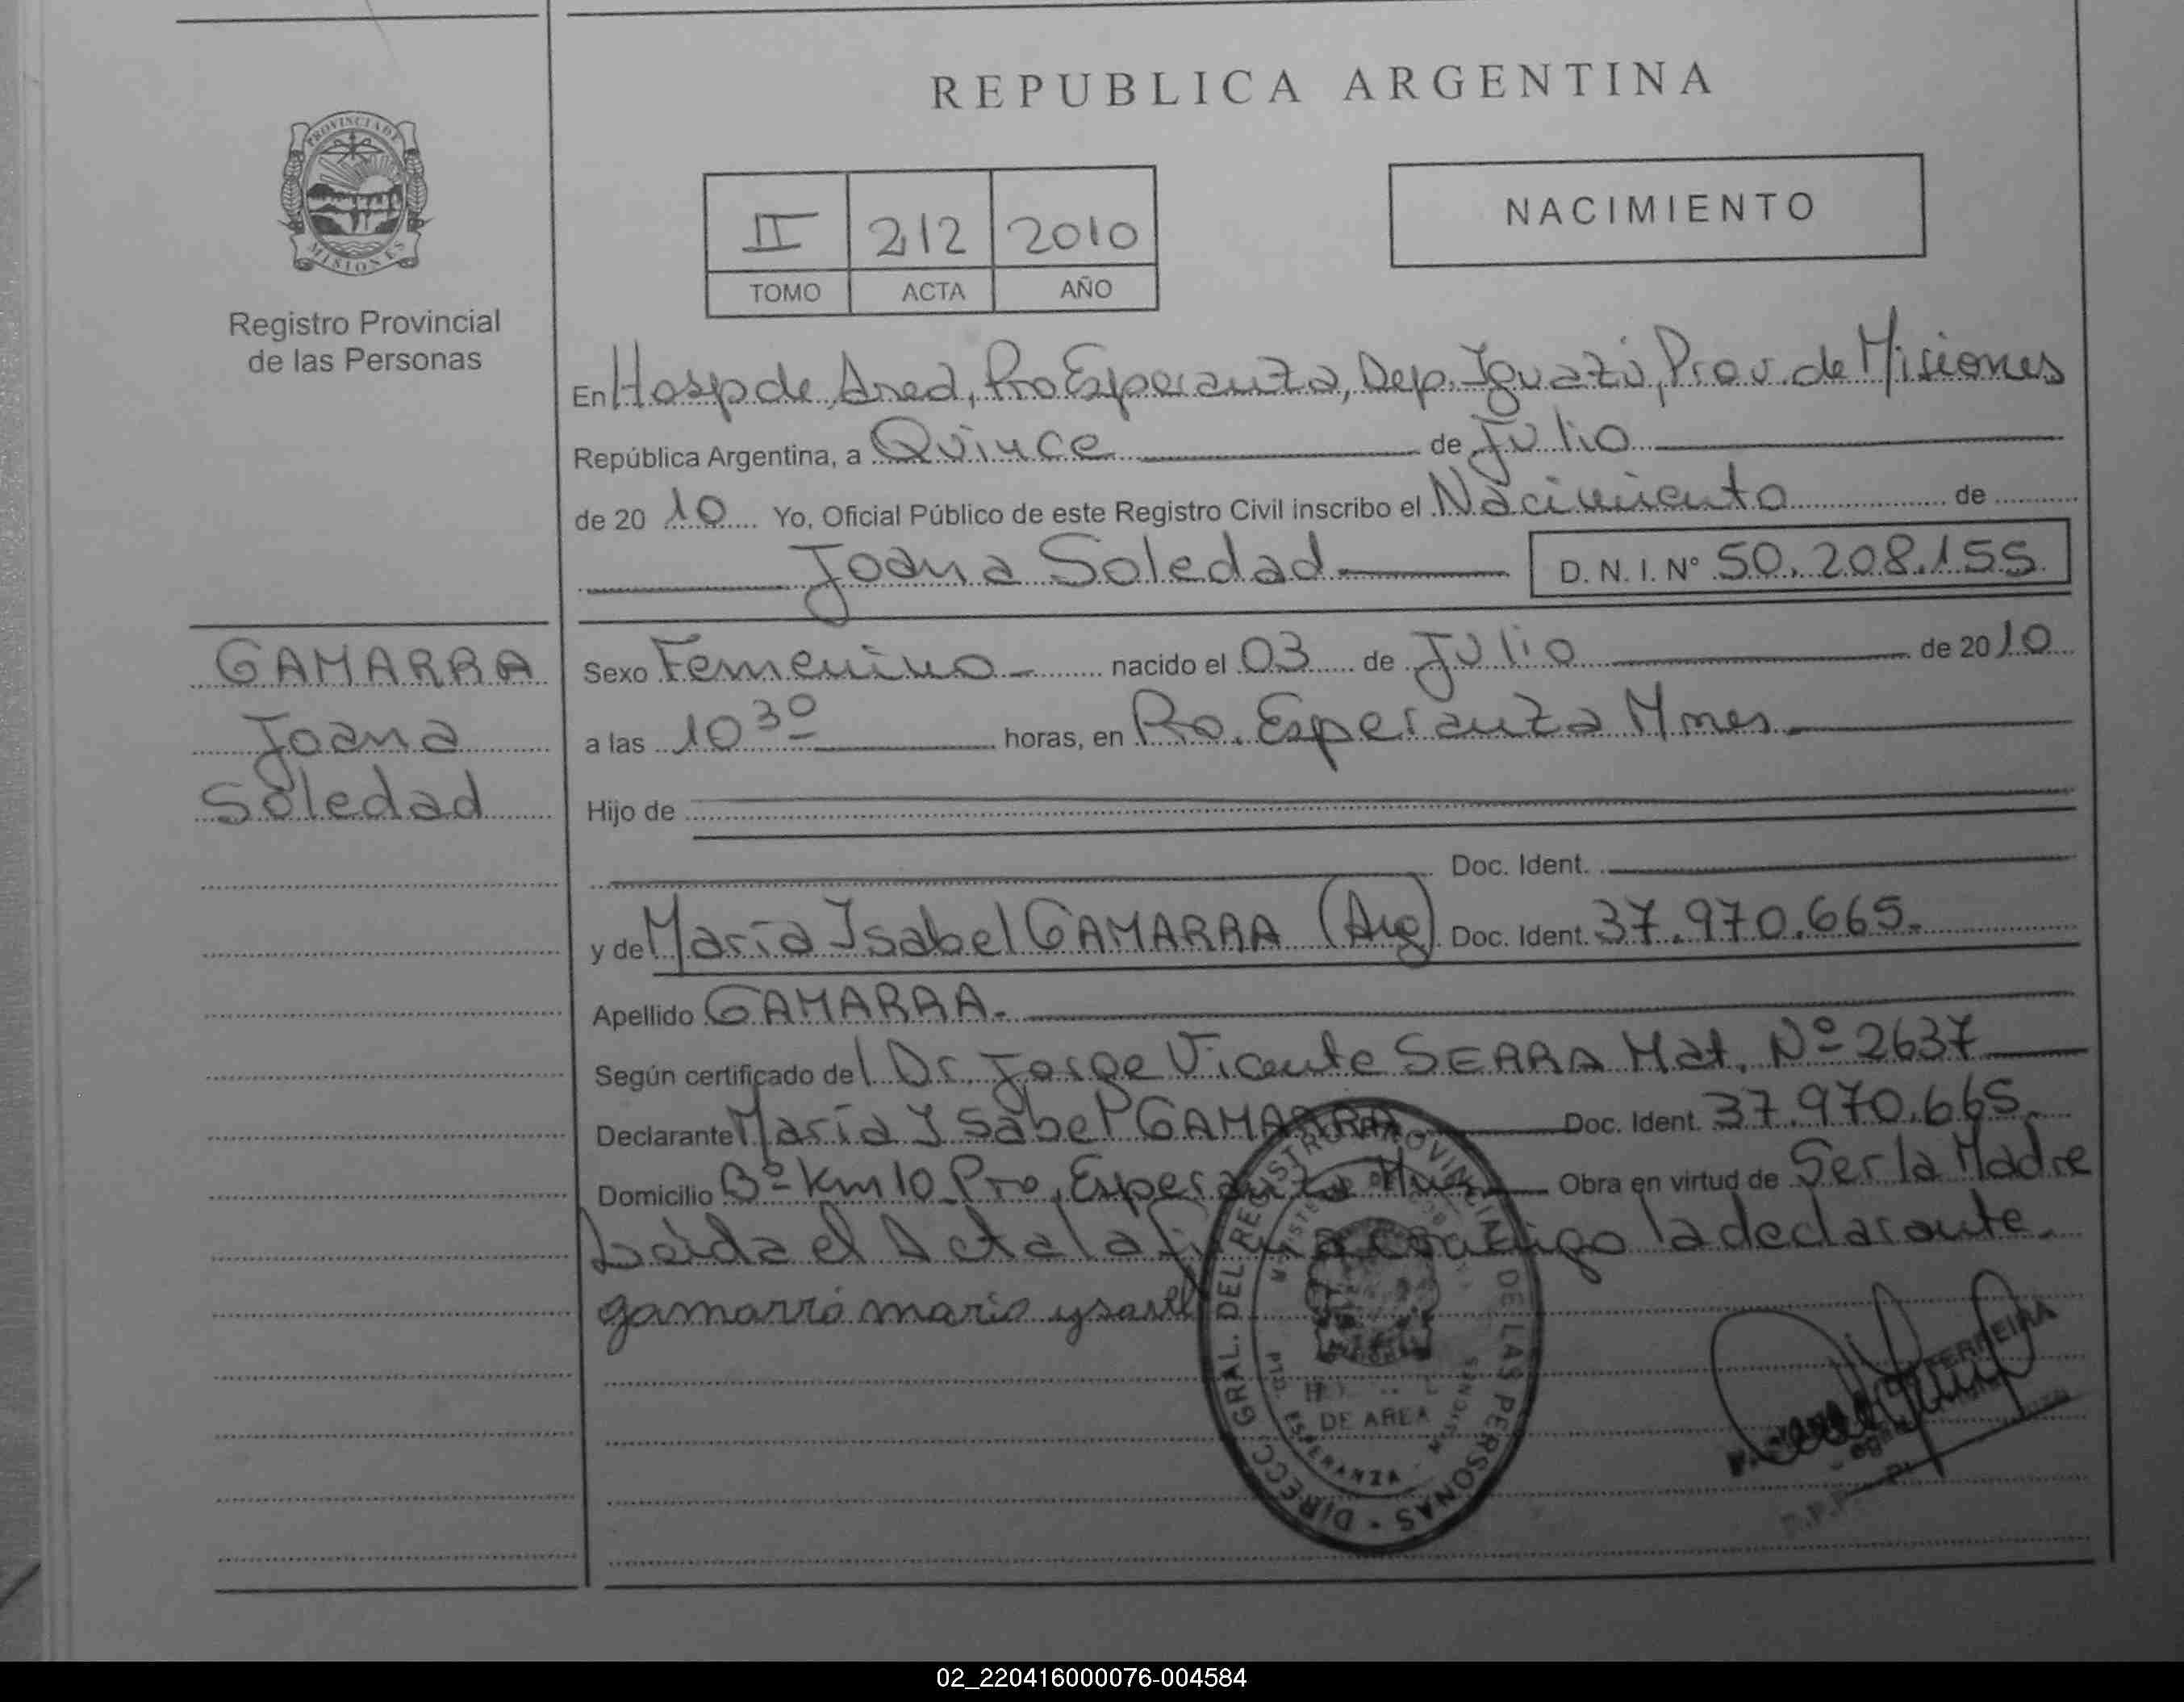 REPUBLICA ARGENTINA
PROVINCIA DE
MISIONES
Registro Provincial
de las Personas
II 212 2010
TOMO ACTA AÑO
NACIMIENTO
En Hosp de Area, Pto Esperanza, Dep. Iguazú, Prov. de Misiones
República Argentina, a Quince de Julio
de 20 10 Yo, Oficial Público de este Registro Civil inscribo el Nacimiento de
Joana Soledad D. N. I. Nº 50.208.155
GAMARRA
Joana
Soledad
Sexo Femenino nacido el 03 de Julio de 20 10
a las 10 30 horas, en Pto. Esperanza Mnes
Hijo de
Doc. Ident.
y de María Isabel GAMARRA (Arg) Doc. Ident. 37.970.665.
Apellido GAMARRA.
Según certificado del Dr. Jorge Vicente SERRA Mat. Nº 2637
Declarante María Isabel GAMARRA Doc. Ident. 37.970.665.
Domicilio Bº Km 10 Pto. Esperanza Obra en virtud de Ser la Madre
Leída el Acta la conmigo la declarante.
gamarra maria ysavel
DIRECC. GRAL. DEL REGISTRO PROVINCIAL DE LAS PERSONAS
DE AREA
PTO. ESPERANZA - MISIONES
FERREIRA
02_220416000076-004584